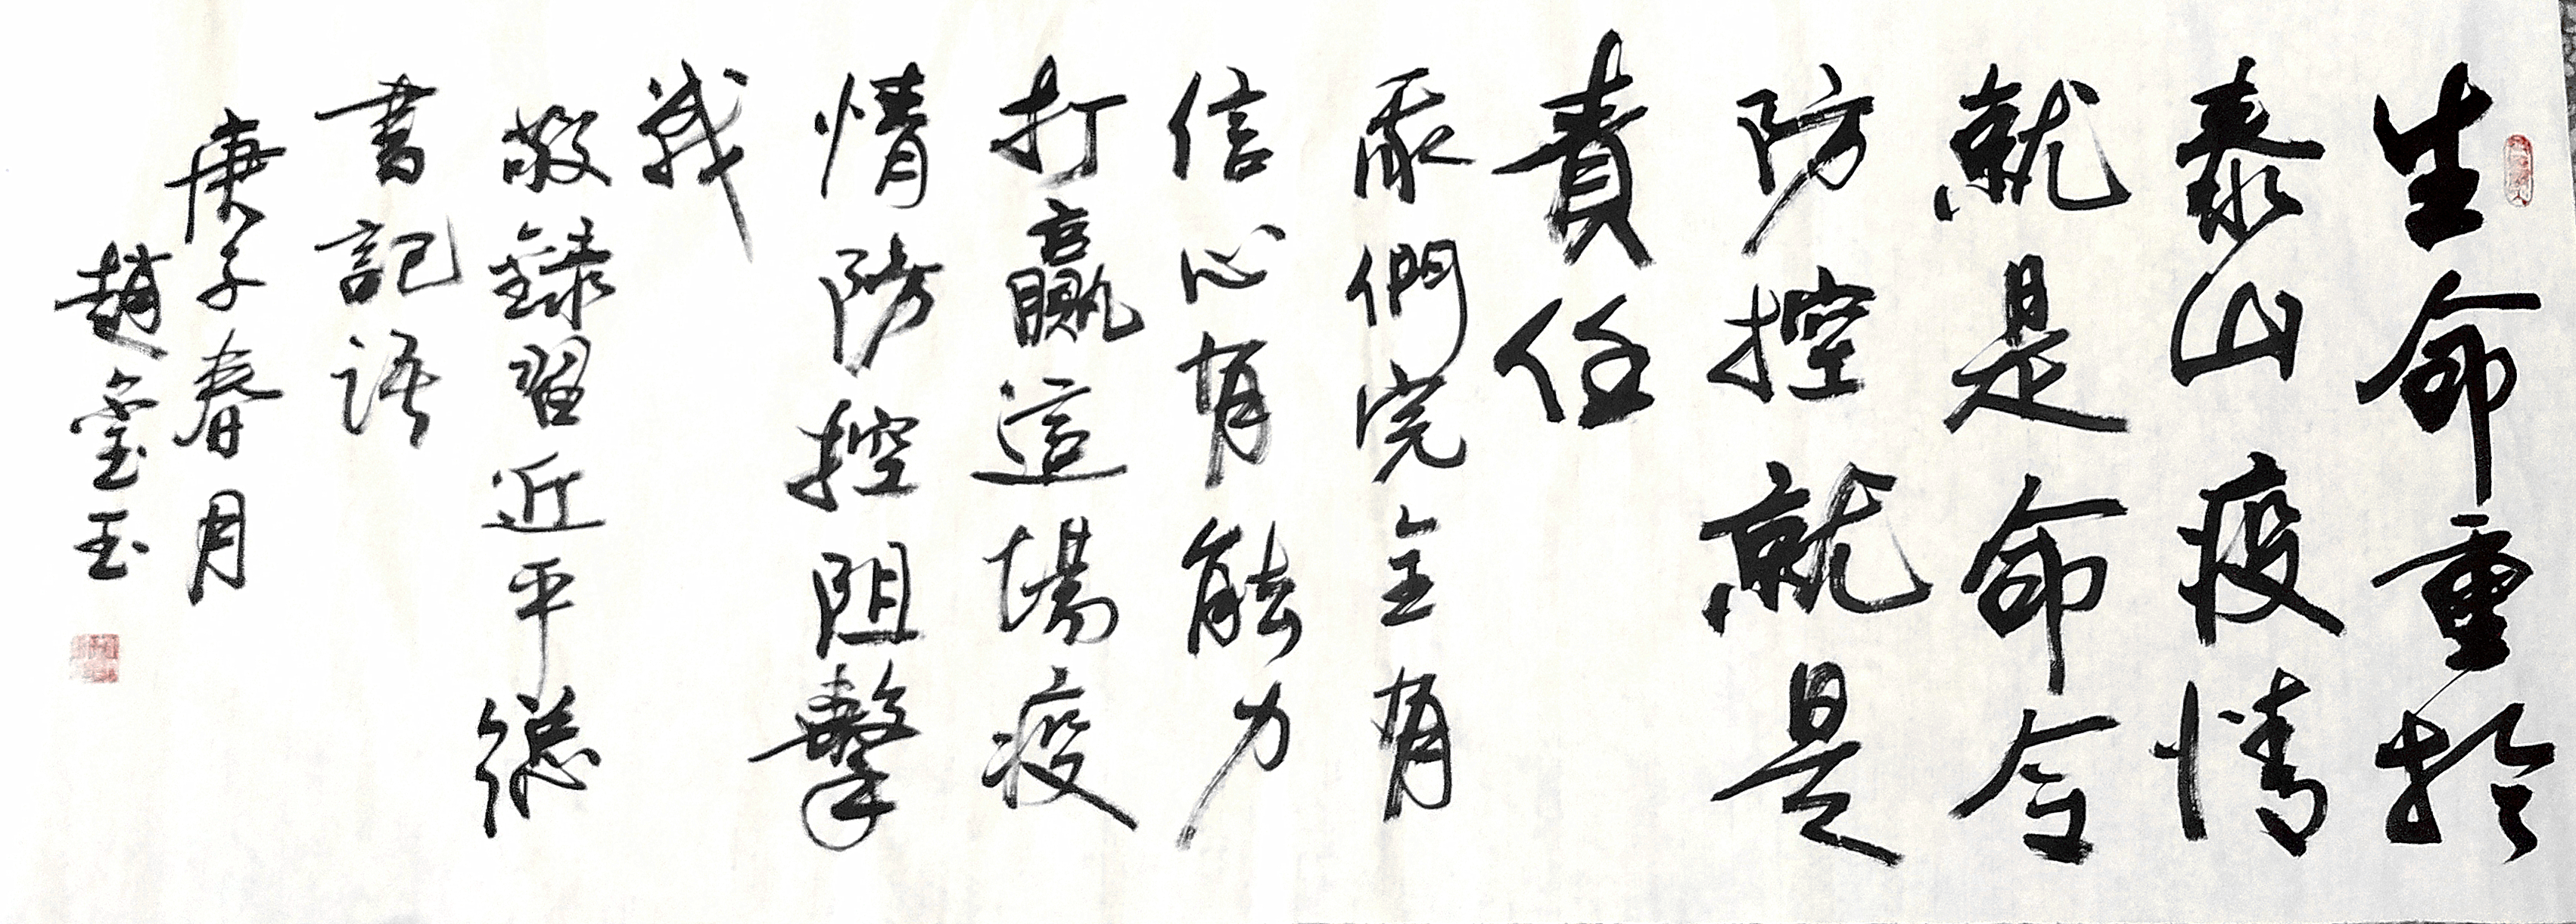 生命重於
泰山疫情
就是命令
防控就是
責任
我們完全有
信心有能力
打贏這場疫
情防控阻擊
戰
敬錄習近平總
書記語
庚子春月
趙玉